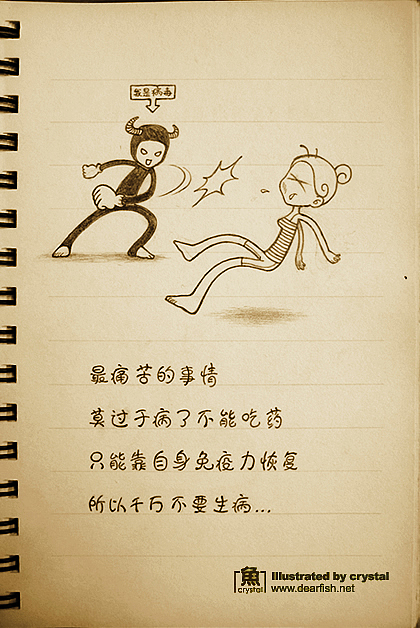 我是病毒
最痛苦的事情
莫过于病了不能吃药
只能靠自身免疫力恢复
所以千万不要生病...
魚
crystal
Illustrated by crystal
www.dearfish.net